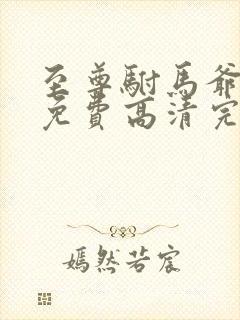 至尊駙馬爺
免費高清完
嫣然若宸